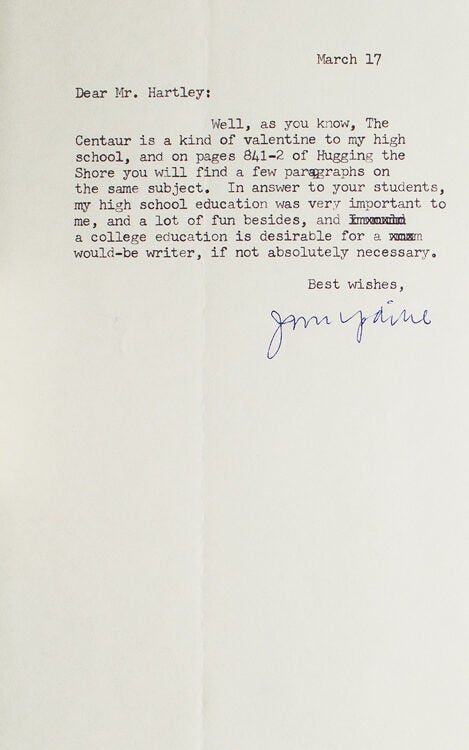 March 17
Dear Mr. Hartley:
Well, as you know, The
Centaur is a kind of valentine to my high
school, and on pages 841-2 of Hugging the
Shore you will find a few paragraphs on
the same subject. In answer to your students,
my high school education was very important to
me, and a lot of fun besides, and
a college education is desirable for a
would-be writer, if not absolutely necessary.
Best wishes,
John Updike